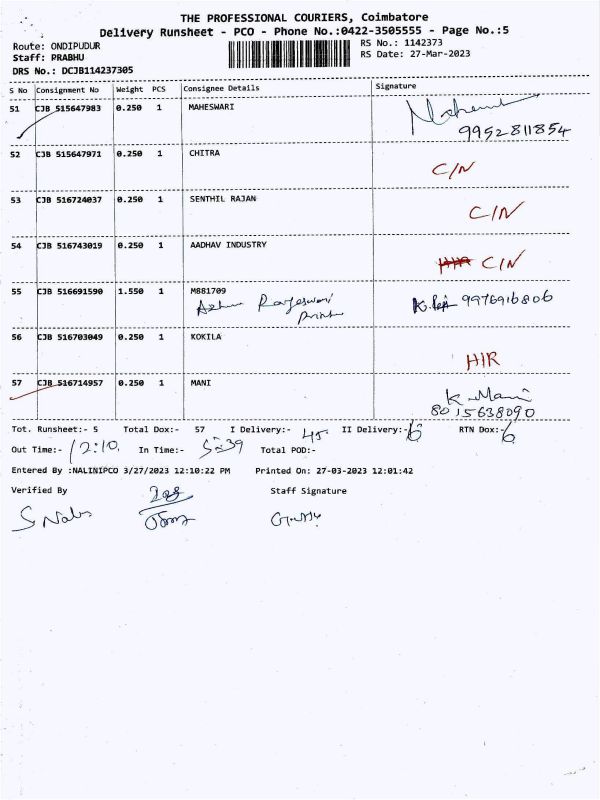 THE PROFESSIONAL COURIERS, Coimbatore
Delivery Runsheet - PCO - Phone No.:0422-3505555 - Page No.:5
Route: ONDIPUDUR
RS No.: 1142373
Staff: PRABHU
RS Date: 27-Mar-2023
DRS No.: DCJB114237305
S No Consignment No Weight PCS Consignee Details Signature
51 CJB 515647983 0.250 1 MAHESWARI
9952811854
52 CJB 515647971 0.250 1 CHITRA
C/N
53 CJB 516724037 0.250 1 SENTHIL RAJAN
C/N
54 CJB 516743019 0.250 1 AADHAV INDUSTRY
C/N
55 CJB 516691590 1.550 1 M881709
Rajeswari 9976916806
56 CJB 516703049 0.250 1 KOKILA
HIR
57 CJB 516714957 0.250 1 MANI
K. Mani
8015638090
Tot. Runsheet:- 5 Total Dox:- 57 I Delivery:- 45 II Delivery:- 6 RTN Dox:- 6
Out Time:- 12:10. In Time:- 5:39 Total POD:-
Entered By :NALINIPCO 3/27/2023 12:10:22 PM Printed On: 27-03-2023 12:01:42
Verified By Staff Signature